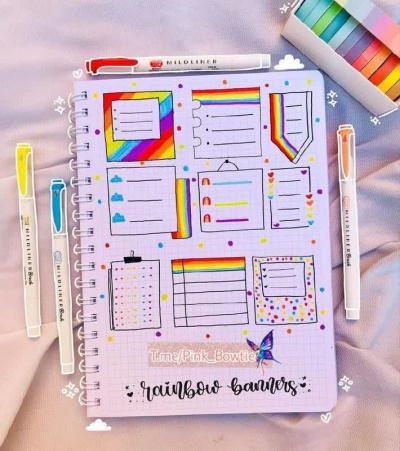 MILDLINER
MILDLINER
MILDLINER Brush
MILDLINER Brush
MILDLINER Brush
T.me/Pink_Bowtie
rainbow banners